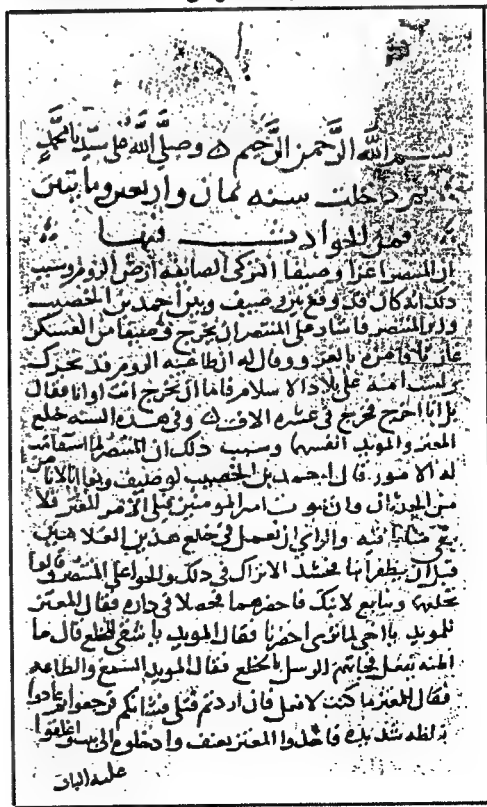 بسم الله الرحمن الرحيم ه وصلى الله على سيدنا محمد
ثم دخلت سنه ثمان واربعين ومايتين
فمن الحوادث فيها
ان المنتصر اغزا وصيفا التركى الصائفه ارض الروم وسبب
ذلك انه كان قد وقع بين وصيف وبين احمد بن الخصيب
وزير المنتصر فاشار على المنتصر ان يخرج وصيفا من العسكر
غازيا فامره بالغزو وقال له ان طاغيه الروم قد تحرك
ولست امنه على بلاد الاسلام فاما ان تخرج انت او انا فقال
بل انا اخرج فخرج فى عشره الاف ه وفى هذه السنه خلع
المعتز والمويد انفسهما وسبب ذلك ان المنتصر لما استقامت
له الامور قال احمد بن الخصيب لوصيف وبغا انا لانامن
من الحدثان وان يموت امير المومنين فيلى الامر المعتز فلا
يبقى منا باقيه والراى ان نعمل فى خلع هذين الغلامين
قبل ان يظفرا بنا فجد الاتراك فى ذلك والحوا على المنتصر وقالوا
نخلعهما ونبايع لابنك فاحضرهما فجعلا فى دار فقال المعتز
للمويد يا اخى لم ترى احضرنا فقال المويد يا شقى للخلع قال ما
اظنه يفعل فجاتهم الرسل بالخلع فقال المويد السمع والطاعه
فقال المعتز ما كنت لافعل فان اردتم قتلى فشانكم فرجعوا ثم عادوا
بغلظه شديده فاخذوا المعتز بعنف وادخلوه الى بيت واغلقوا
عليه الباب